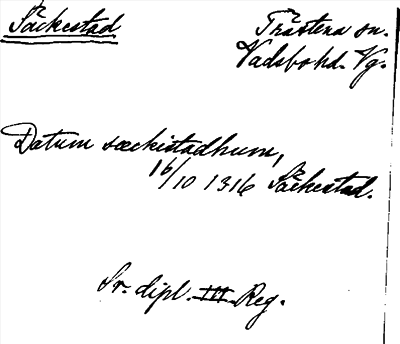 Säckestad
Trästena sn.
Vadsbo hd. Vg.
Datum sækistadhum,
16/10 1316 Säckestad.
Sv. dipl. III Reg.